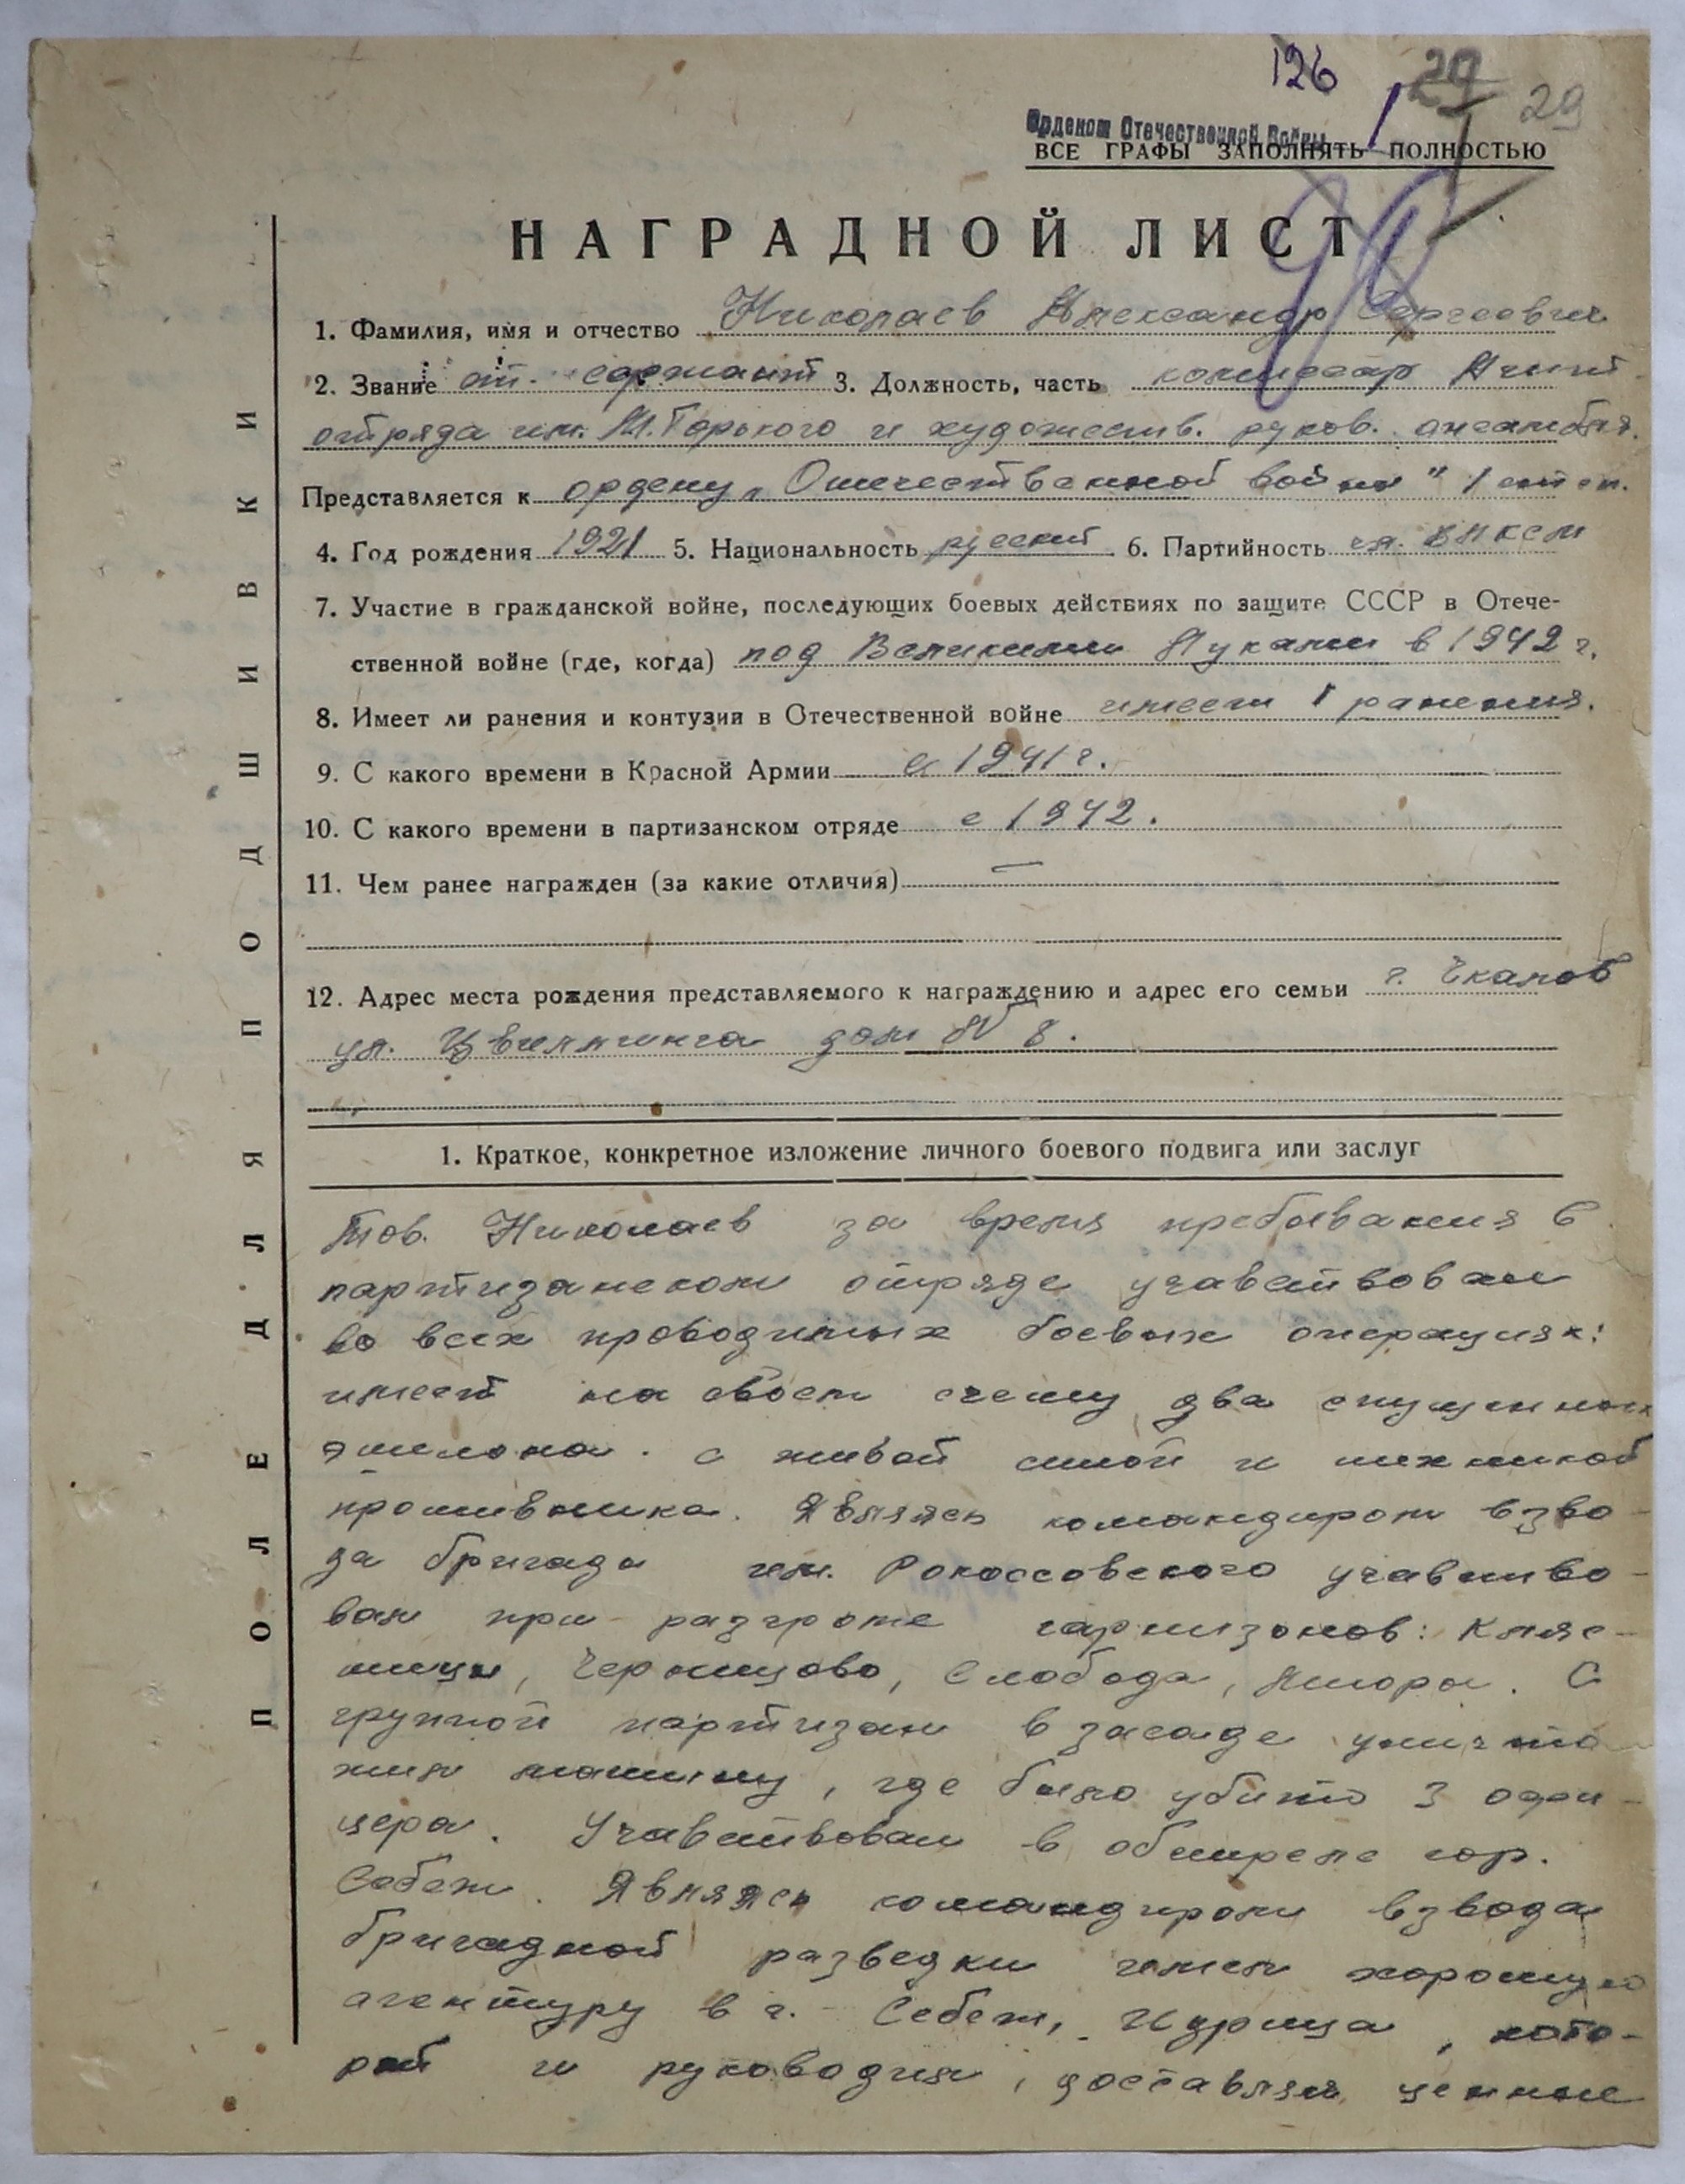 126 29 29
Орденом Отечественной Войны I
ВСЕ ГРАФЫ ЗАПОЛНЯТЬ ПОЛНОСТЬЮ
НАГРАДНОЙ ЛИСТ
1. Фамилия, имя и отчество Николаев Александр Сергеевич
2. Звание ст. сержант 3. Должность, часть комиссар Агит
отряда им. М. Горького и художеств. руков. ансамбля.
Представляется к ордену „Отечественной войны" 1 степ.
4. Год рождения 1921 5. Национальность русский 6. Партийность чл. ВЛКСМ
7. Участие в гражданской войне, последующих боевых действиях по защите СССР в Отече-
ственной войне (где, когда) под Великими Луками в 1942 г.
8. Имеет ли ранения и контузии в Отечественной войне имеет 1 ранения.
9. С какого времени в Красной Армии с 1941 г.
10. С какого времени в партизанском отряде с 1942.
11. Чем ранее награжден (за какие отличия) —
12. Адрес места рождения представляемого к награждению и адрес его семьи г. Чкалов
ул. Цвиллинга дом № 8.
1. Краткое, конкретное изложение личного боевого подвига или заслуг
Тов. Николаев за время пребывания в
партизанском отряде учавствовал
во всех проводимых боевых операциях:
имеет на своем счету два спущенных
эшелона. с живой силой и техникой
противника. Являясь командиром взво-
да бригады им. Рокоссовского учавство-
вал при разгроме гарнизонов: Кляс-
тицы, Черницово, Слобода, С
группой партизан в засаде уничто
жил машину, где было убито 3 офи-
цера. Учавствовал в обстреле гор.
Себеж. Являясь командиром взвода
бригадной разведки имел хорошую
агентуру в г. Себеж, Идрица, кото-
рой и руководил, доставлял ценные
ПОЛЕ ДЛЯ ПОДШИВКИ